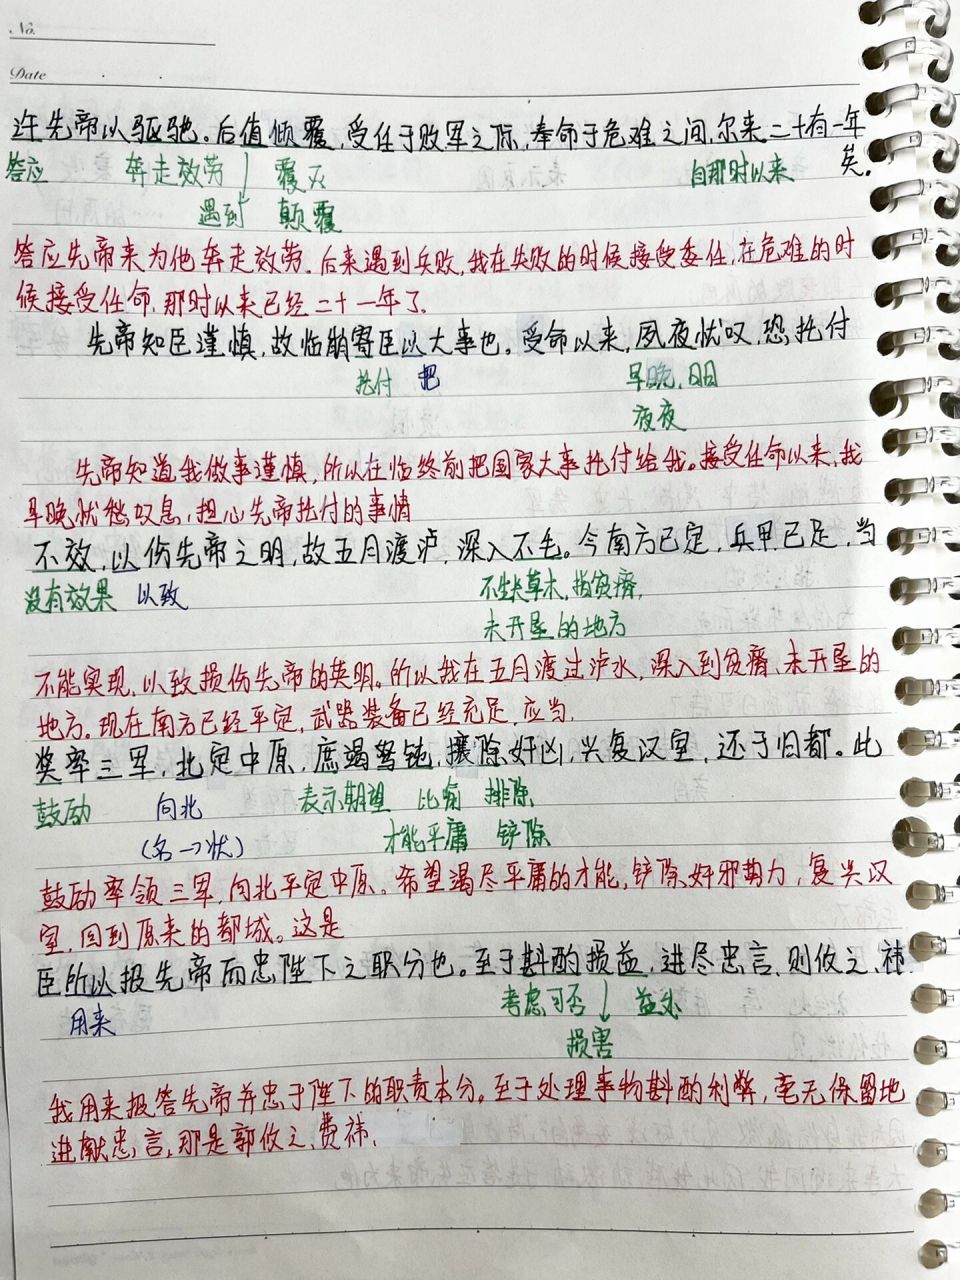 No.
Date
许先帝以驱驰。后值倾覆,受任于败军之际,奉命于危难之间,尔来二十有一年
矣。
答应 奔走效劳 覆灭 自那时以来
遇到 颠覆
答应先帝来为他奔走效劳。后来遇到兵败,我在失败的时候接受委任,在危难的时
候接受任命,那时以来已经二十一年了。
先帝知臣谨慎,故临崩寄臣以大事也。受命以来,夙夜忧叹,恐托付
托付 把 早晚,日日
夜夜
先帝知道我做事谨慎,所以在临终前把国家大事托付给我。接受任命以来,我
早晚忧愁叹息,担心先帝托付的事情
不效,以伤先帝之明,故五月渡泸,深入不毛。今南方已定,兵甲已足,当
没有效果 以致 不生长草木,指贫瘠,
未开垦的地方
不能实现,以致损伤先帝的英明。所以我在五月渡过泸水,深入到贫瘠、未开垦的
地方。现在南方已经平定,武器装备已经充足,应当,
奖率三军,北定中原,庶竭驽钝,攘除奸凶,兴复汉室,还于旧都。此
鼓励 向北 表示期望 比喻 排除
(名→状) 才能平庸 铲除
鼓励率领三军,向北平定中原。希望竭尽平庸的才能,铲除奸邪势力,复兴汉
室,回到原来的都城。这是
臣所以报先帝而忠陛下之职分也。至于斟酌损益,进尽忠言,则攸之、祎
用来 考虑可否 益处
损害
我用来报答先帝并忠于陛下的职责本分。至于处理事物斟酌利弊,毫无保留地
进献忠言,那是郭攸之、费祎,